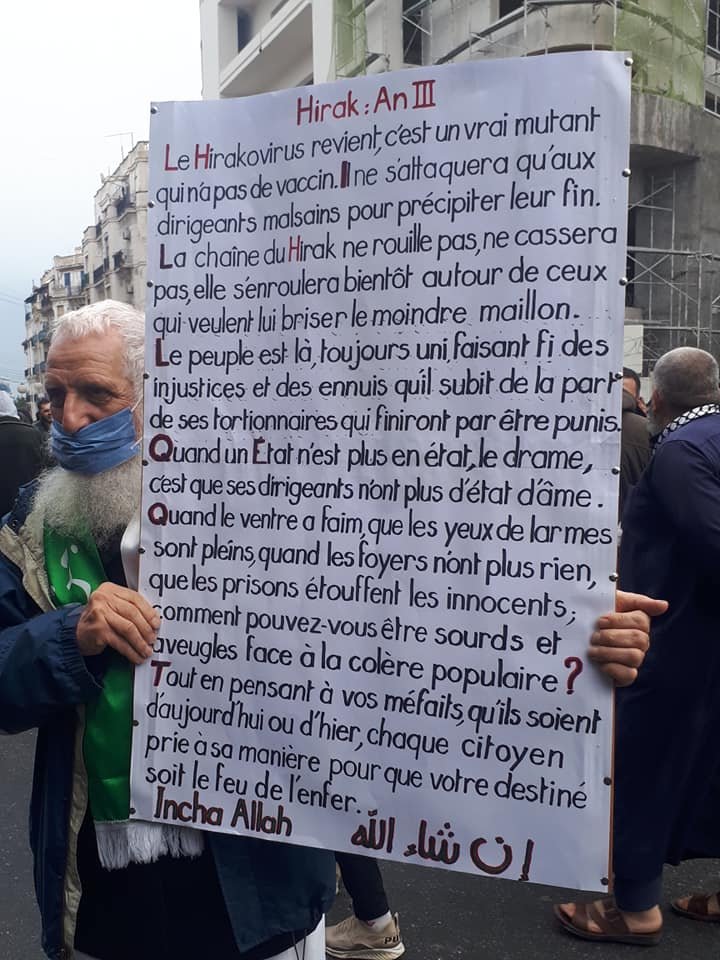 Hirak : An III
Le Hirakovirus revient, c'est un vrai mutant
qui n'a pas de vaccin. Il ne s'attaquera qu'aux
dirigeants malsains pour précipiter leur fin.
La chaîne du Hirak ne rouille pas, ne cassera
pas, elle s'énroulera bientôt autour de ceux
qui veulent lui briser le moindre maillon.
Le peuple est là, toujours uni, faisant fi des
injustices et des ennuis qu'il subit de la part
de ses tortionnaires qui finiront par être punis.
Quand un État n'est plus en état, le drame,
c'est que ses dirigeants n'ont plus d'état d'âme.
Quand le ventre a faim, que les yeux de larmes
sont pleins, quand les foyers n'ont plus rien,
que les prisons étouffent les innocents;
comment pouvez-vous être sourds et
aveugles face à la colère populaire ?
Tout en pensant à vos méfaits, qu'ils soient
d'aujourd'hui ou d'hier, chaque citoyen
prie à sa manière pour que votre destiné
soit le feu de l'enfer.
Incha Allah إن شاء الله